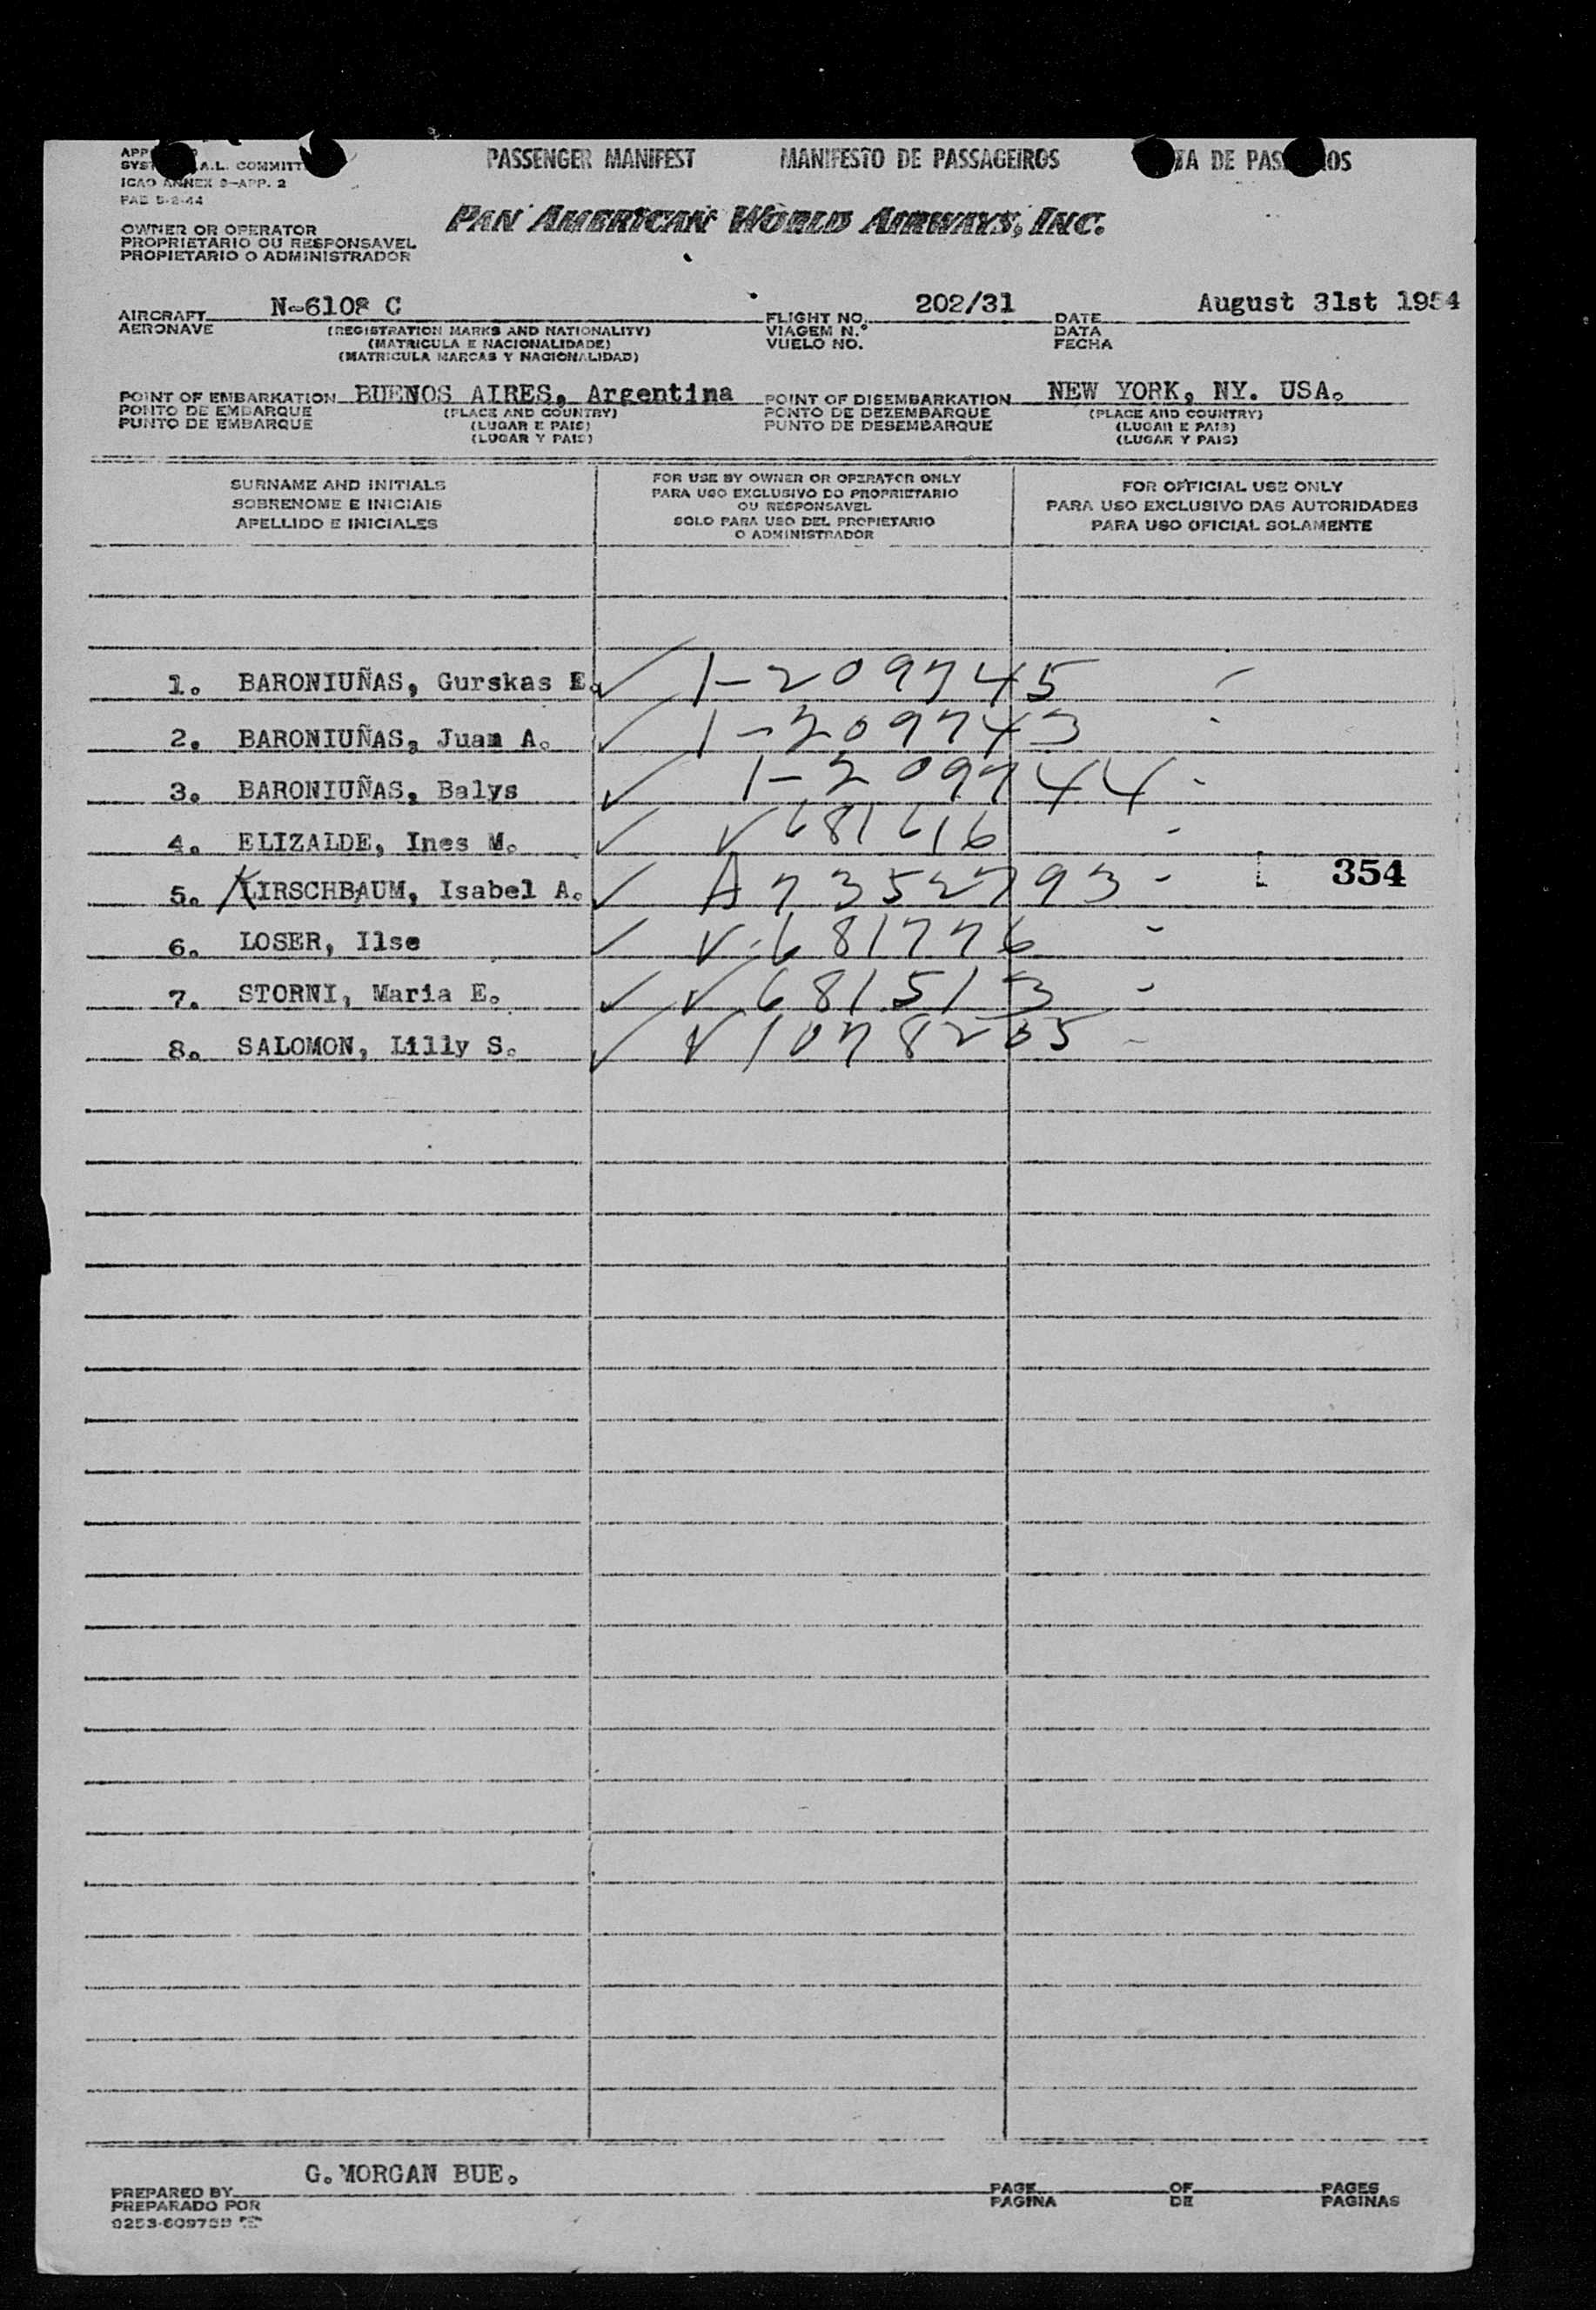 PASSENGER MANIFEST MANIFESTO DE PASSAGEIROS DE
A.L.
ICAO ANNEX 9-APP. 2
OWNER OR OPERATOR
PROPRIETARIO OU RESPONSAVEL
PROPIETARIO O ADMINISTRADOR
PAN AMERICAN WORLD AIRWAYS, INC.
AIRCRAFT N-6108 C FLIGHT NO. 202/31 DATE August 31st 1954
AERONAVE (REGISTRATION MARKS AND NATIONALITY) VIAGEM N.º DATA
(MATRICULA E NACIONALIDADE) VUELO NO. FECHA
(MATRICULA MARCAS Y NACIONALIDAD)
POINT OF EMBARKATION BUENOS AIRES, Argentina POINT OF DISEMBARKATION NEW YORK, NY. USA.
PONTO DE EMBARQUE (PLACE AND COUNTRY) PONTO DE DEZEMBARQUE (PLACE AND COUNTRY)
PUNTO DE EMBARQUE (LUGAR E PAIS) PUNTO DE DESEMBARQUE (LUGAR E PAIS)
(LUGAR Y PAIS) (LUGAR Y PAIS)
SURNAME AND INITIALS
SOBRENOME E INICIAIS
APELLIDO E INICIALES
FOR USE BY OWNER OR OPERATOR ONLY
PARA USO EXCLUSIVO DO PROPRIETARIO
OU RESPONSAVEL
SOLO PARA USO DEL PROPIETARIO
O ADMINISTRADOR
FOR OFFICIAL USE ONLY
PARA USO EXCLUSIVO DAS AUTORIDADES
PARA USO OFICIAL SOLAMENTE
1. BARONIUÑAS, Gurskas E. ✓ 1-209745 -
2. BARONIUÑAS, Juan A. ✓ 1-209743 -
3. BARONIUÑAS, Balys ✓ 1-209744 -
4. ELIZALDE, Ines M. ✓ V 681616 -
5. KIRSCHBAUM, Isabel A. ✓ A7352793 - 354
6. LOSER, Ilse ✓ V-681776 -
7. STORNI, Maria E. ✓ V 681513 -
8. SALOMON, Lilly S. ✓ V 1078235 -
G. MORGAN BUE.
PREPARED BY PAGE OF PAGES
PREPARADO POR PAGINA DE PAGINAS